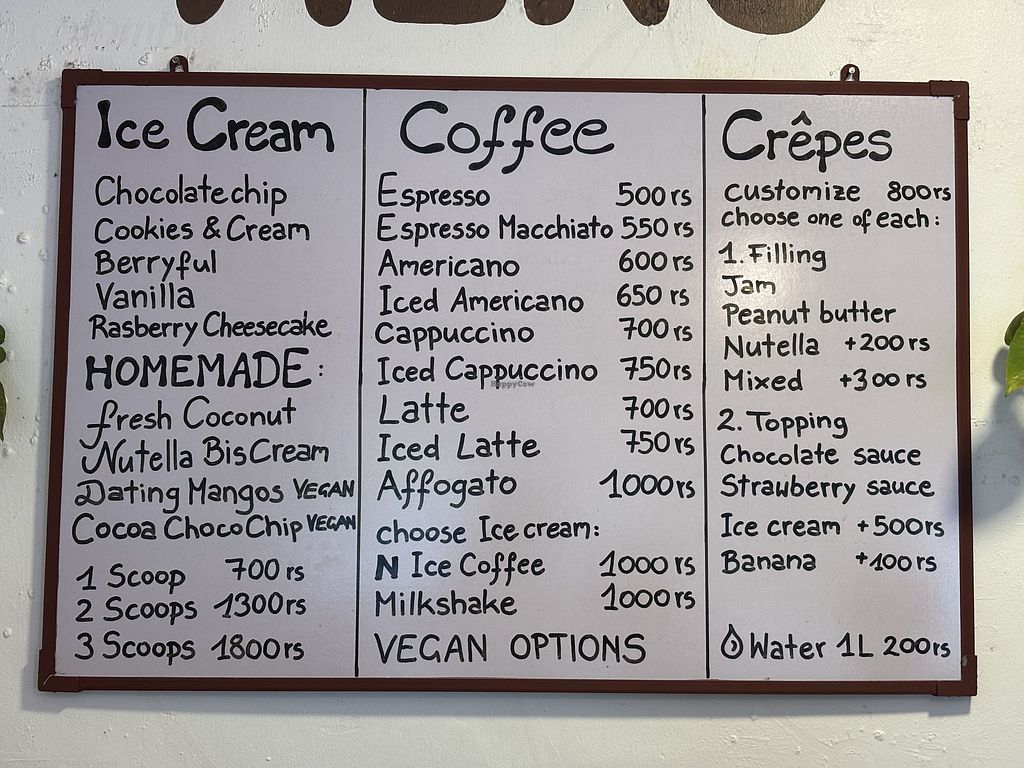 Ice Cream
Chocolate chip
Cookies & Cream
Berryful
Vanilla
Rasberry Cheesecake
HOMEMADE:
fresh Coconut
Nutella BisCream
Dating Mangos VEGAN
Cocoa ChocoChip VEGAN
1 Scoop 700 rs
2 Scoops 1300rs
3 Scoops 1800rs
Coffee
Espresso 500 rs
Espresso Macchiato 550 rs
Americano 600 rs
Iced Americano 650 rs
Cappuccino 700 rs
Iced Cappuccino 750 rs
HappyCow
Latte 700 rs
Iced Latte 750 rs
Affogato 1000 rs
choose Ice cream:
N Ice Coffee 1000 rs
Milkshake 1000 rs
VEGAN OPTIONS
Crêpes
customize 800 rs
choose one of each:
1. Filling
Jam
Peanut butter
Nutella +200 rs
Mixed +300 rs
2. Topping
Chocolate sauce
Strawberry sauce
Ice cream +500rs
Banana +100 rs
Water 1L 200 rs